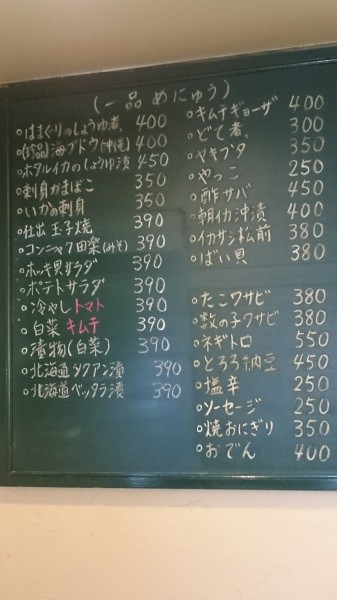 (一品めにゅう)
○はまぐりのしょうゆ煮. 400
○(珍品)海ブドウ(沖縄) 400
○ホタルイカのしょうゆ漬 450
○刺身かまぼこ 350
○いかの刺身 350
○仕出玉子焼 390
○コンニャク田楽(みそ) 390
○ホッキ貝サラダ 390
○ポテトサラダ 390
○冷やしトマト 390
○白菜キムチ 390
○漬物(白菜) 390
○北海道タクアン漬 390
○北海道ベッタラ漬 390
○キムチギョーザ 400
○どて煮. 300
○ヤキブタ 350
○やっこ 250
○酢サバ 450
○朝イカ沖漬 400
○イカサシ松前 380
○ばい貝 380
○たこワサビ 380
○数の子ワサビ 380
○ネギトロ 550
○とろろ納豆 450
○塩辛 250
○ソーセージ 250
○焼おにぎり 350
○おでん 400